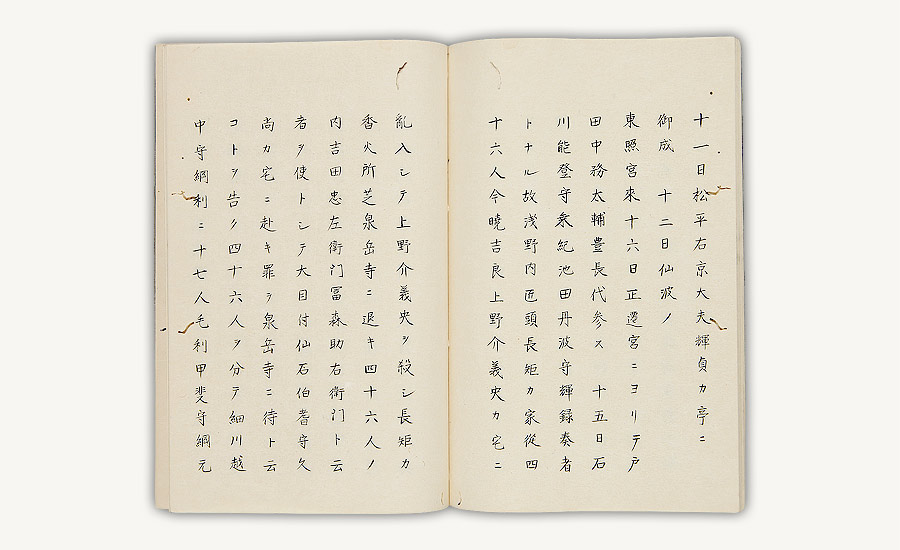 十一日松平右京大夫輝貞カ亭ニ
御成　十二日仙波ノ
東照宮來十六日正遷宮ニヨリテ戸
田中務太輔豊長代参ス　十五日石
川能登守乗紀池田丹波守輝録奏者
トナル故浅野内匠頭長矩カ家從四
十六人今曉吉良上野介義央カ宅ニ
亂入シテ上野介義央ヲ殺シ長矩カ
香火所芝泉岳寺ニ退キ四十六人ノ
内吉田忠左衛门冨森助右衛门ト云
者ヲ使トシテ大目付仙石伯耆守久
尚カ宅ニ赴キ罪ヲ泉岳寺ニ待ト云
コトヲ告ク四十六人ヲ分テ細川越
中守綱利ニ十七人毛利甲斐守綱元